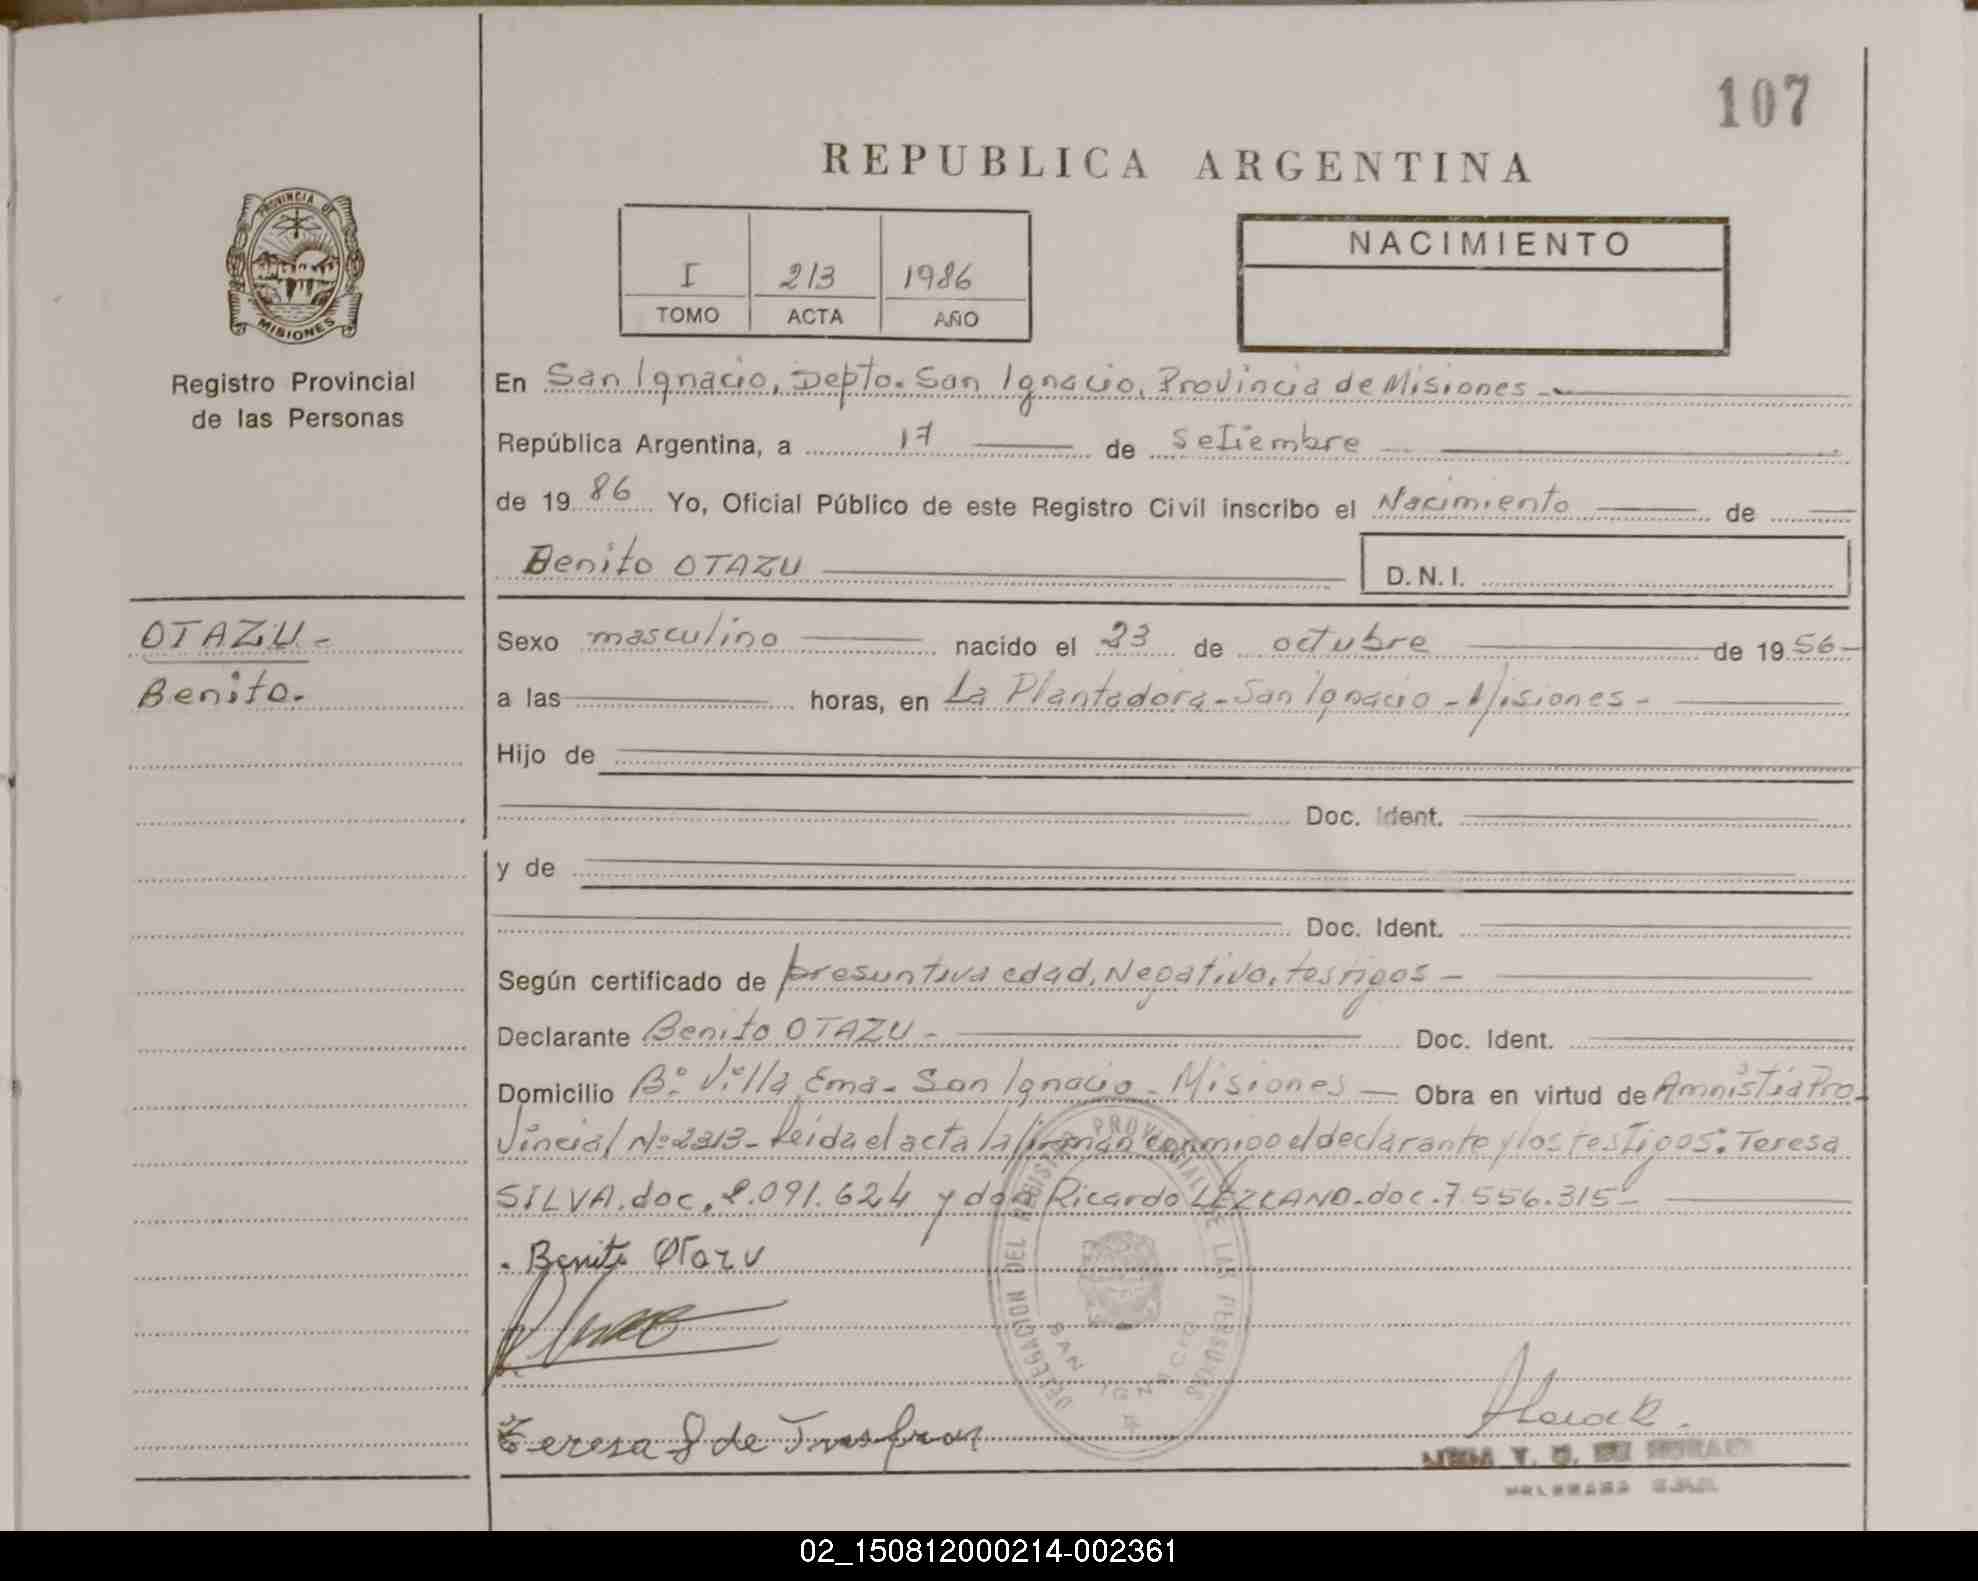 107
REPUBLICA ARGENTINA
PROVINCIA DE
MISIONES
Registro Provincial
de las Personas
I 213 1986
TOMO ACTA AÑO
NACIMIENTO
En San Ignacio, Depto. San Ignacio, Provincia de Misiones -
República Argentina, a 17 de Setiembre
de 19 86 Yo, Oficial Público de este Registro Civil inscribo el Nacimiento de
Benito OTAZU
D.N.I.
OTAZU -
Benito.
Sexo masculino nacido el 23 de octubre de 19 56 -
a las horas, en La Plantadora - San Ignacio - Misiones -
Hijo de
Doc. Ident.
y de
Doc. Ident.
Según certificado de presuntiva edad, Negativo, testigos -
Declarante Benito OTAZU - Doc. Ident.
Domicilio B° Villa Ema - San Ignacio - Misiones - Obra en virtud de Amnistía Pro-
vincial N° 2313 - Leida el acta la firman conmigo el declarante y los testigos: Teresa
SILVA. doc. 2.091.624 y don Ricardo LEZCANO. doc. 7.556.315 -
Benito Otazu
DELEGACION DEL REGISTRO PROVINCIAL DE LAS PERSONAS
SAN IGNACIO
Teresa S de
02_150812000214-002361